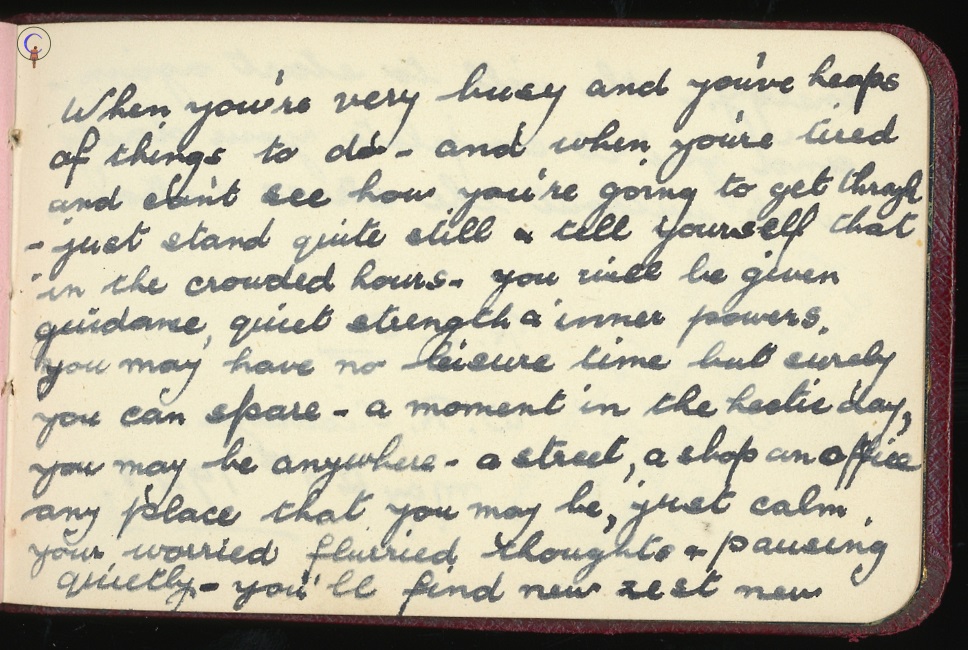 When you're very busy and you've heaps
of things to do - and when you're tired
and can't see how you're going to get through
- just stand quite still & tell yourself that
in the crowded hours - you will be given
guidance, quiet strength & inner powers.
You may have no leisure time but surely
you can spare - a moment in the hectic day,
you may be anywhere - a street, a shop an office
any place that you may be, just calm
your worried flurried thoughts & pausing
quietly - you'll find new zest new